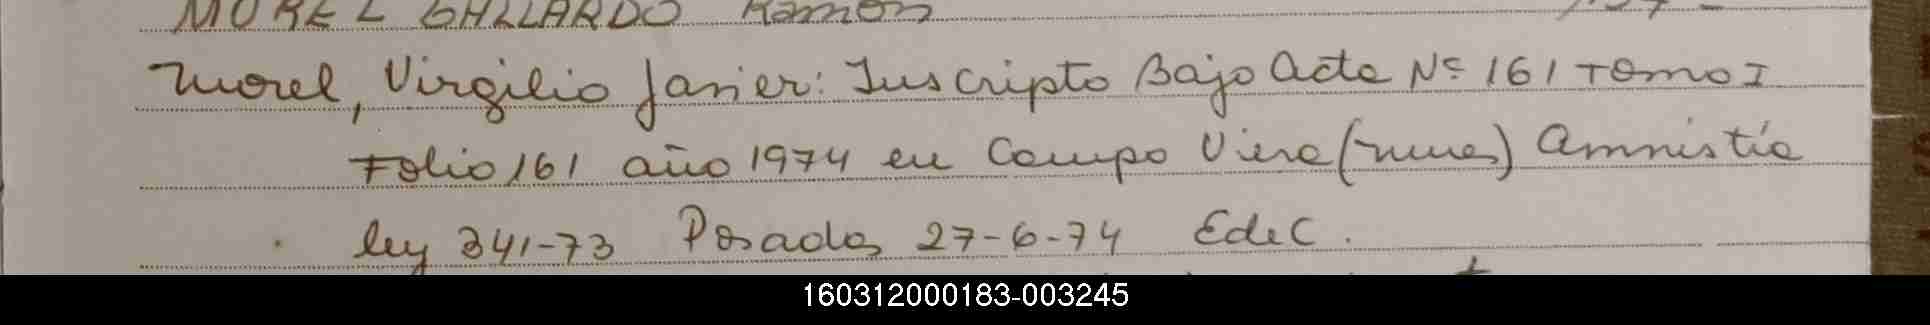 MOREL GALLARDO Ramon
Morel, Virgilio Javier: Inscripto Bajo Acta Nº 161 Tomo I
Folio 161 año 1974 en Campo Viera (mnes) Amnistía
ley 341-73 Posadas 27-6-74 EdeC.
160312000183-003245